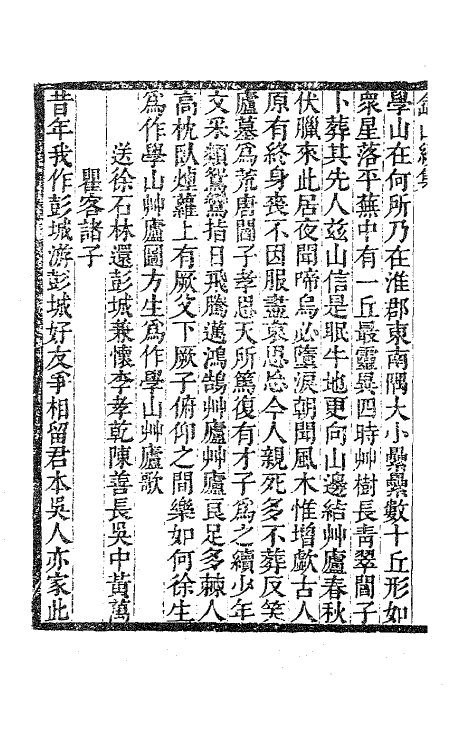 學山在何所乃在淮郡東南隅大小纍纍數十丘形如
衆星落平蕪中有一丘最靈異四時艸樹長青翠閻子
卜葬其先人兹山信是眠牛地更向山邊結艸廬春秋
伏臘來此居夜聞啼烏必墮淚朝聞風木惟增歔古人
原有終身喪不因服盡哀思忘今人親死多不葬反笑
廬墓爲荒唐閻子孝思天所篤復有才子爲之續少年
文采頻鴛鴦指日飛騰邁鴻鵠艸廬艸廬良足多棘人
高枕臥煙蘿上有厥父下厥子俯仰之間樂如何徐生
爲作學山艸廬圖方生爲作學山艸廬歌
送徐石林還彭城兼懷李孝乾陳善長吳中黃萬
瞿客諸子
昔年我作彭城游彭城好友爭相留君本吳人亦家此